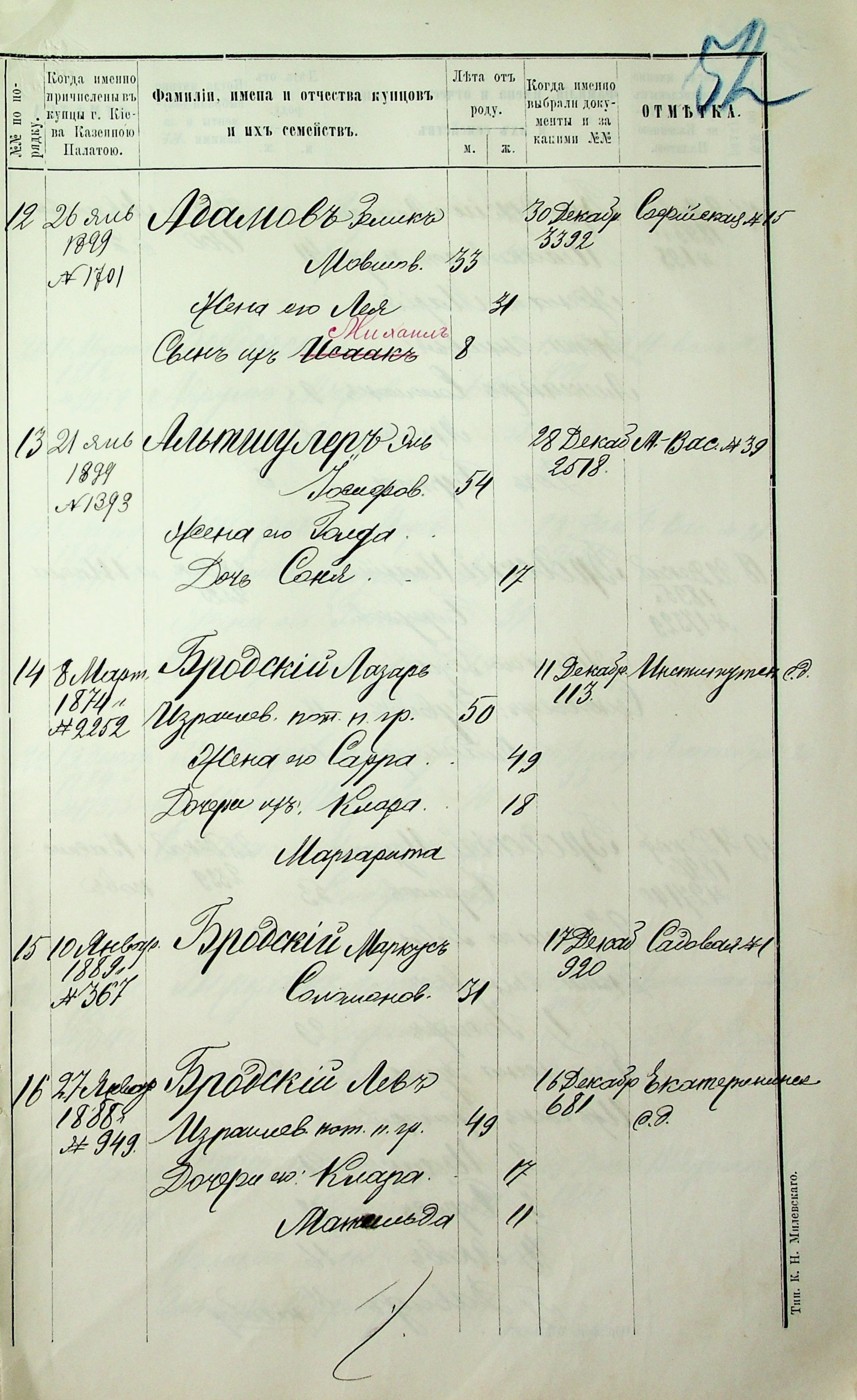 52
№№ по порядку.
Когда именно
причислены въ
купцы г. Кіе-
ва Казенною
Палатою.
Фамиліи, имена и отчества купцовъ
и ихъ семействъ.
Лѣта отъ
роду.
м. ж.
Когда именно
выбрали доку-
менты и за
какими №№
ОТМѢТКА.
12 26 янв Адамовъ Зеликъ 30 Декабр Софійская № 15
1899 3392
№ 1701 Мовшов. 33
Жена его Лея 31
Михаилъ
Сынъ ихъ Исаакъ 8
13 21 янв Альтшулеръ 28 Декаб М-Вас. № 39
1899 2518.
№ 1393 Іосифов. 54
Жена его Голда
Дочь Соня 17
14 8 Март. Бродскій Лазарь 11 Декабр. Институтск с.д.
1874 113.
№ 2252 Израилев. пот. п. гр. 50
Жена его Сарра 49
Дочери ихъ: Клара 18
Маргарита
15 10 Январ. Бродскій Маркусъ 17 Декаб Садовая № 1
1889 920
№ 367 Соломонов. 31
16 27 Январ Бродскій Левъ 16 Декабр Екатеринине
1888 681 с.д.
№ 949. Израилев. пот. п. гр. 49
Дочери его: Клара 17
Матильда 11
Тип. К. Н. Милевскаго.